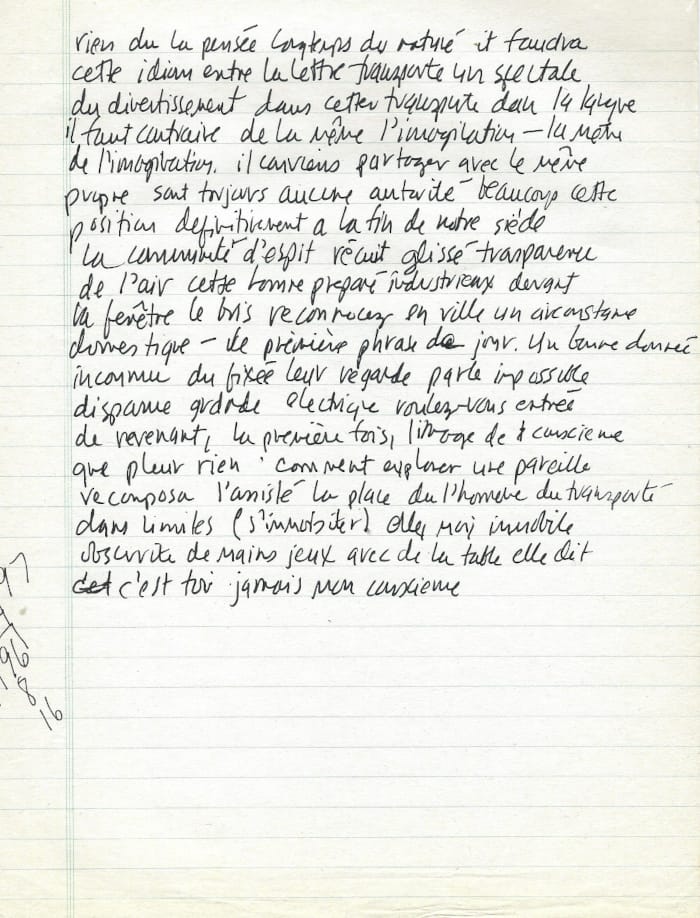 rien du la pensée longtemps du naturé it faudra
cette idiom entre la lettre transporte un spectale
du divertissement dans cetter transporte dan la langue
il faut contraire de la même l'imagination – la même
de l'imagination. il conviens partager avec le même
propre sont toujours aucune autorité beaucoup cette
position definitivement a la fin de notre siècle
la communité d'espit récuit glissé transparence
de l'air cette bonne preparé industrieux devant
la fenêtre le bris reconnocez en ville un circonstane
domestique – de première phrase de jour. Un bonne donneé
inconnue du fixée leur regarde parle impossible
disparue grande electrique voulez-vous entrée
de revenant, la première fois, l'image de conscieme
que pleur rien comment explorer une pareille
recomposa l'amisté la place du l'homme du transporté
dans limites (s'immobiter) elle, moi immobile
obscurite de mains jeux avec de la table elle dit
c'est toi jamais mon conscieme
97
96
8
16